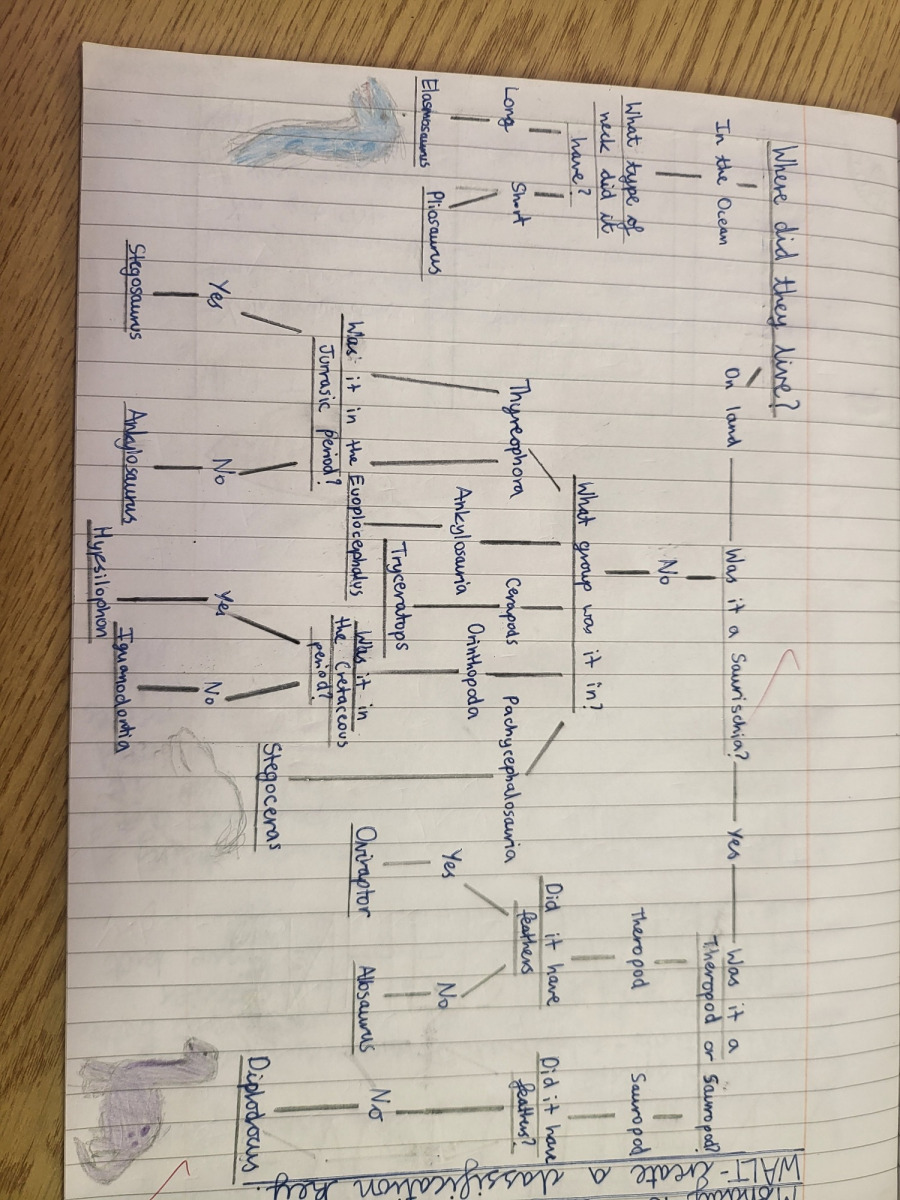 WALT- Create a classification key.
Where did they live?
In the Ocean
On land
Was it a Saurischia?
Yes
Was it a
Theropod or Sauropod?
What type of
neck did it
have?
Long
Short
Elasmosaurus
Pliosaurus
No
What group was it in?
Thyreophora
Ankylosauria
Cerapods
Orinthopoda
Pachycephalosauria
Was it in the
Jurrasic period?
Yes
No
Stegosaurus
Ankylosaurus
Euoplocephalus
Tryceratops
Was it in
the Cretaceous
period?
Yes
No
Hypsilophon
Iguanodontia
Stegoceras
Theropod
Sauropod
Did it have
feathers
Yes
No
Oviraptor
Allosaurus
Did it have
feathers?
No
Diplodocus